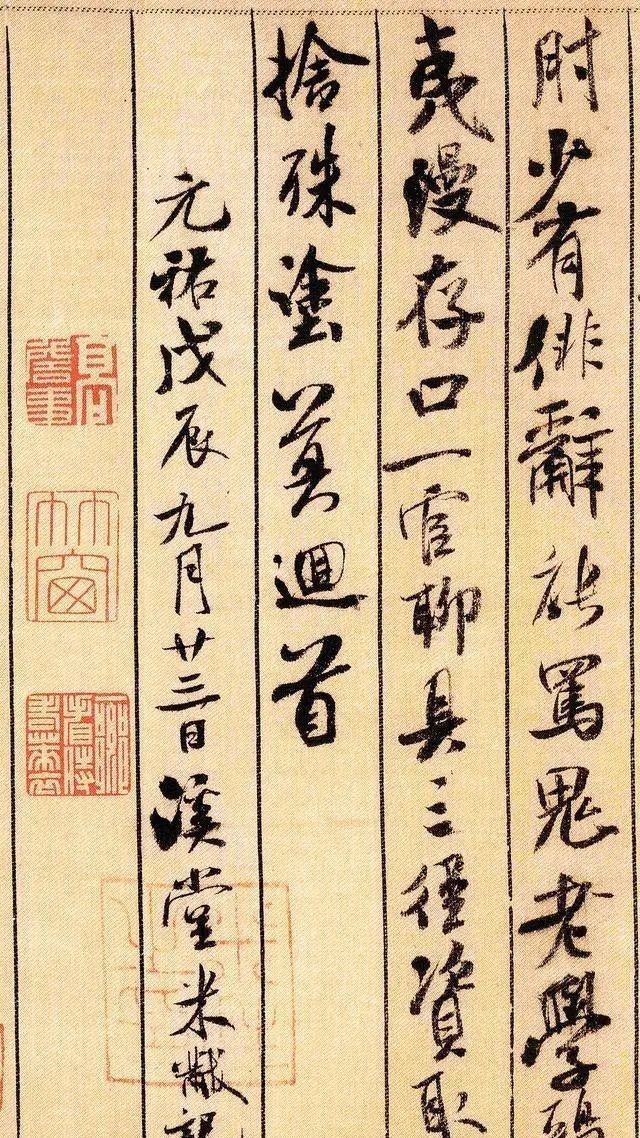 肘少有俳辭能罵鬼老學
夷漫存口一官聊具三徑資取
捨殊塗莫迴首
元祐戊辰九月廿三日溪堂米黻記
竹窗